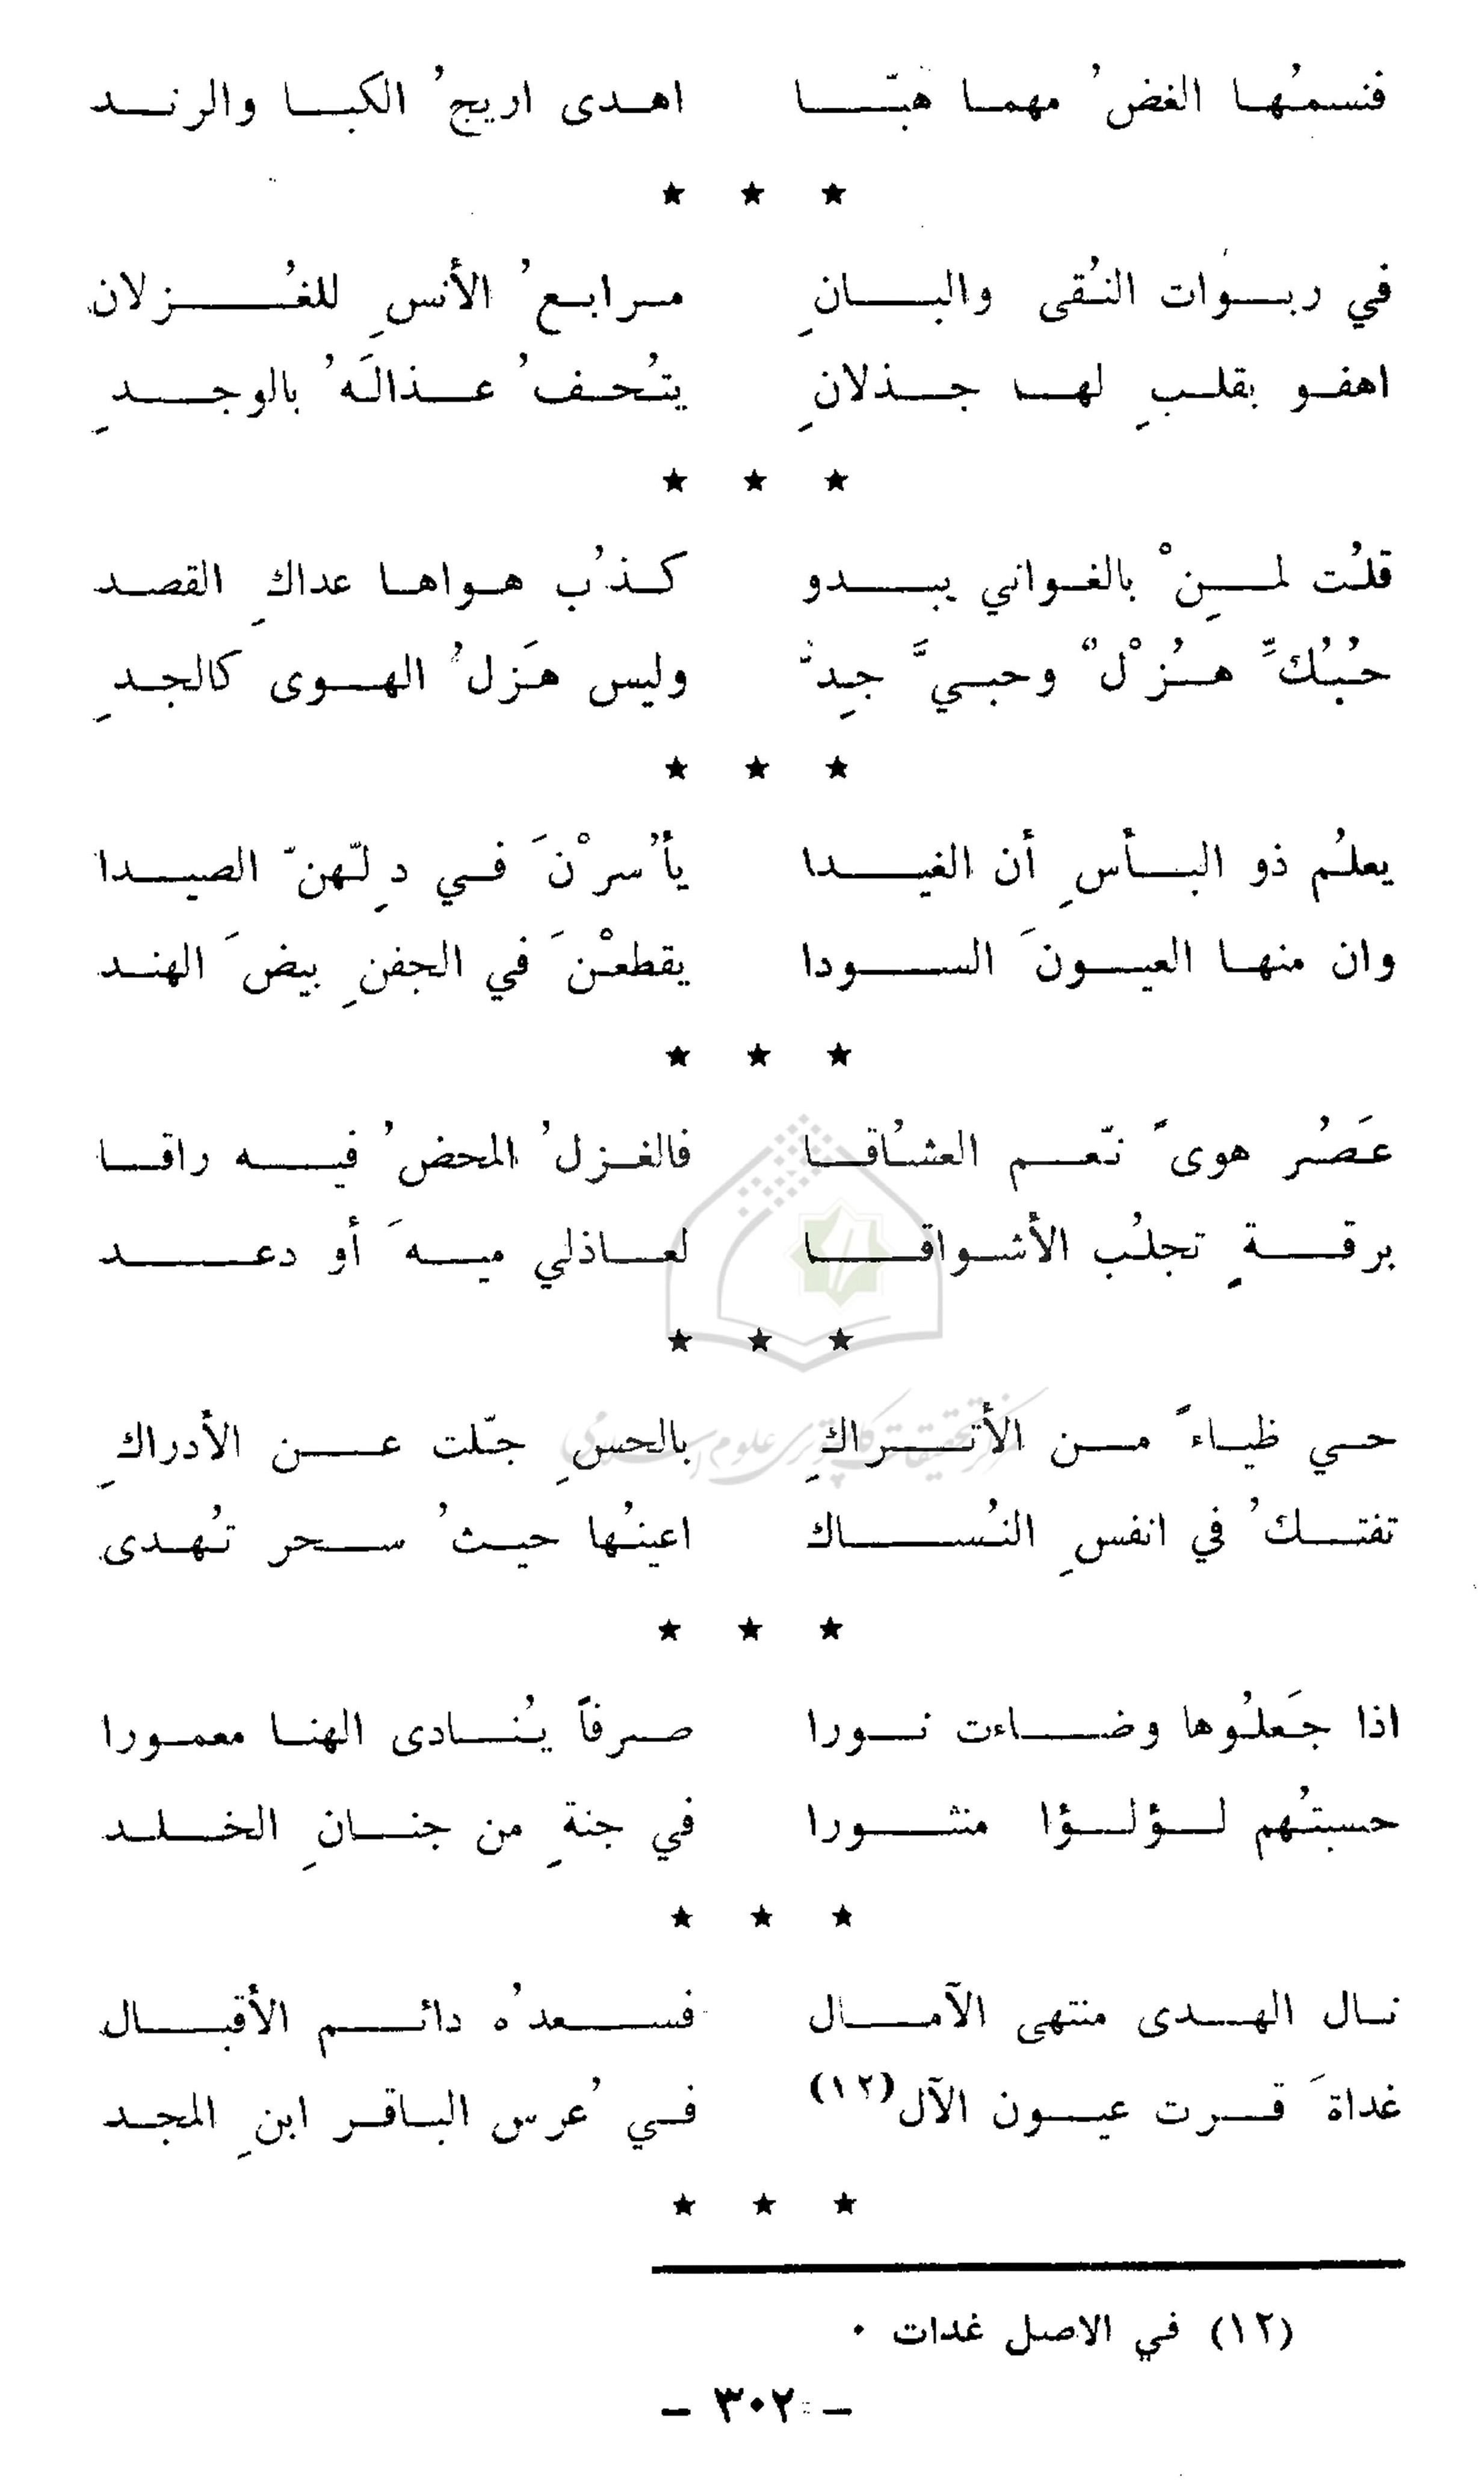 فنسمُها الغضُ مهما هبّا اهدى اريجُ الكبا والرند
★ ★ ★
في ربوات النُقى والبانِ مرابعُ الأنسِ للغُزلان
اهفو بقلبٍ لها جذلانِ يتُحفُ عذالَهُ بالوجدِ
★ ★ ★
قلتُ لمِنْ بالغواني يبدو كذبُ هواها عداكِ القصد
حُبُكِّ هُزْلٌ وحبيَّ جِدٌّ وليس هَزلُ الهوى كالجدِ
★ ★ ★
يعلمُ ذو البأسِ أن الغيدا يأسرْنَ في دِلّهنّ الصيدا
وان منها العيونَ السودا يقطعْنَ في الجفنِ بيضَ الهند
★ ★ ★
عَصرُ هوىً نعّم العشاقا فالغزلُ المحضُ فيه راقا
برقةٍ تجلبُ الأشواقا لعاذلي ميهَ أو دعد
★ ★ ★
حي ظباءً من الأتراكِ بالحسِ جلّت عن الأدراكِ
تفتكُ في انفسِ النُساك اعينُها حيثُ سحر تُهدى
★ ★ ★
اذا جَعلُوها وضاءت نورا صرفاً يُنادى الهنا معمورا
حسبتُهم لؤلؤا منثورا في جنةٍ من جنانِ الخلد
★ ★ ★
نال الهدى منتهى الآمال فسعدُه دائم الأقبال
غداةَ قرت عيون الآل(١٢) في عُرس الباقر ابنِ المجد
★ ★ ★
(١٢) في الاصل غدات ٠
– ٣٠٢ –